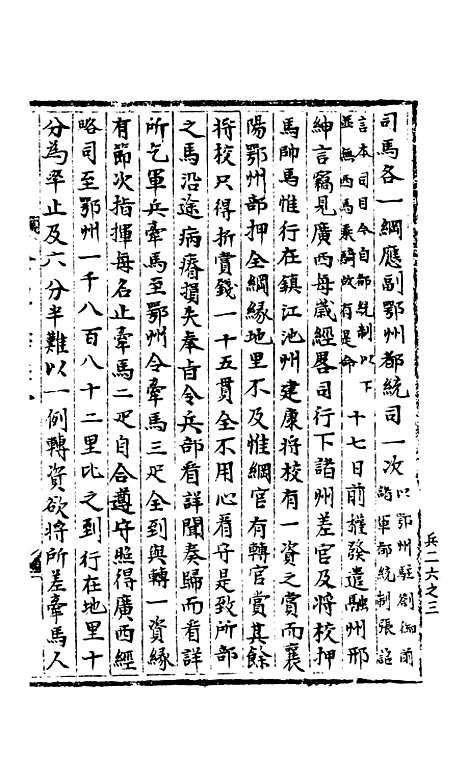 司馬各一綱應副鄂州都統司一次以鄂州駐劄御前諸軍都統制張詔
言本司目今自都統制以下並無西馬乘騎故有是命十七日前權發遣融州邢
紳言竊見廣西每歲經畧司行下諸州差官及將校押
馬帥馬惟行在鎮江池州建康將校有一資之賞而襄
陽鄂州部押全綱緣地里不及惟綱官有轉官賞其餘
將校只得折賞錢一十五貫全不用心看守是致所部
之馬沿途病瘠損失奉旨令兵部看詳聞奏歸而看詳
所乞軍兵牽馬至鄂州令牽馬三疋全到與轉一資緣
有節次指揮每名止牽馬二疋自合遵守照得廣西經
略司至鄂州一千八百八十二里比之到行在地里十
分為率止及六分半難以一例轉資欲將所差牽馬人
兵二六之三